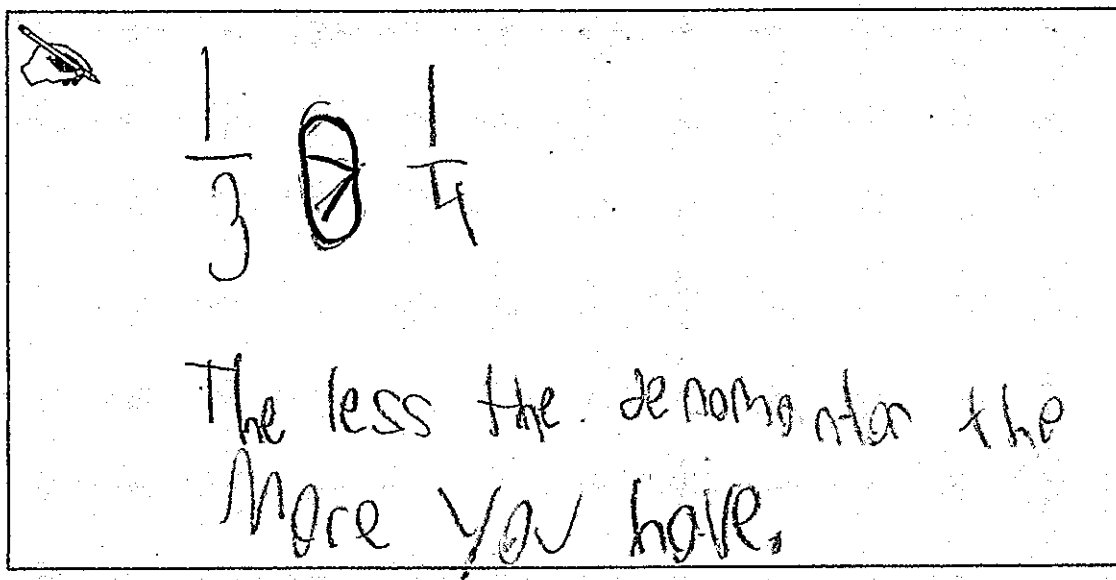 1/3 > 1/4
The less the denomonator the
More you have.